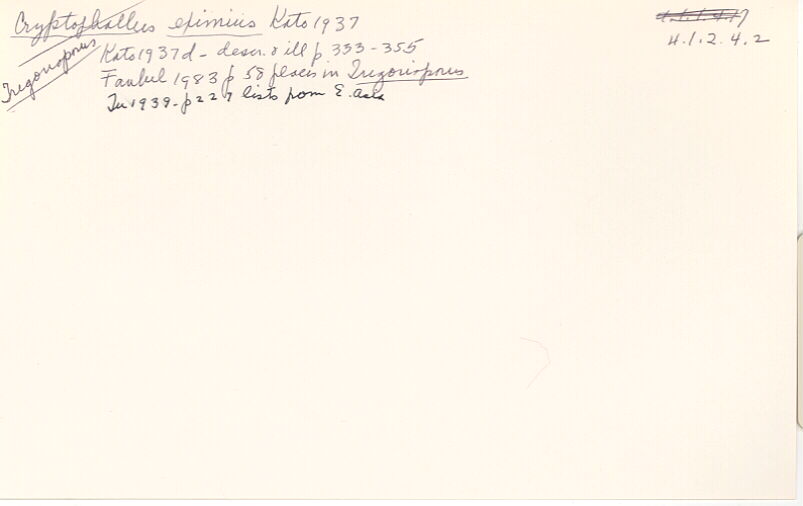 Cryptophallus eximius Kato 1937
Trigonoporus
Kato 1937d - descr. & ill p 353-355
Faubel 1983 p 58 places in Trigonoporus
Tu 1939 - p 227 lists from E. Asia
4.1.2.4.2